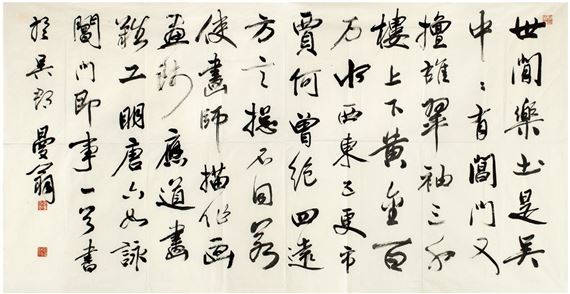 世間樂土是吳
中〻有閶門又
擅雄翠袖三千
樓上下黃金百
万水西東五更市
賈何曾絕四遠
方言總不同若
使畫師描作画
画師應道畫
難工明唐六如詠
閶門即事一首書
於吳郡曼翁